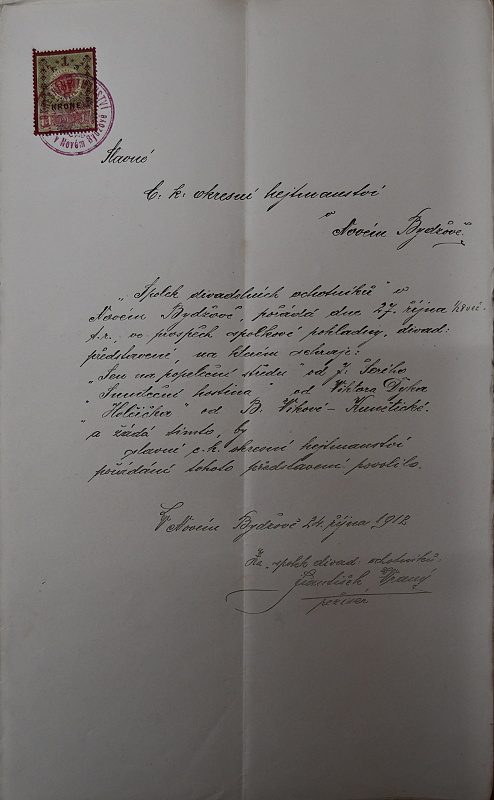 1
KRONE
v Novém Bydžově
Slavné
C. k. okresní hejtmanství
v
Novém Bydžově.
„Spolek divadelních ochotníků" v
Novém Bydžově, pořádá dne 27. října
t.r., ve prospěch spolkové pokladny, divad:
představení, na kterém sehraje:
„Sen na popeleční středu" od J.
„Smuteční hostina" od Viktora Dyka
„Holčička" od B. Vikové-Kunětické.
a žádá tímto, by
slavní c. k. okresní hejtmanství
pořádání tohoto představení povolilo.
V Novém Bydžově 24. října 1912
Za „spolek divad: ochotníků:
František